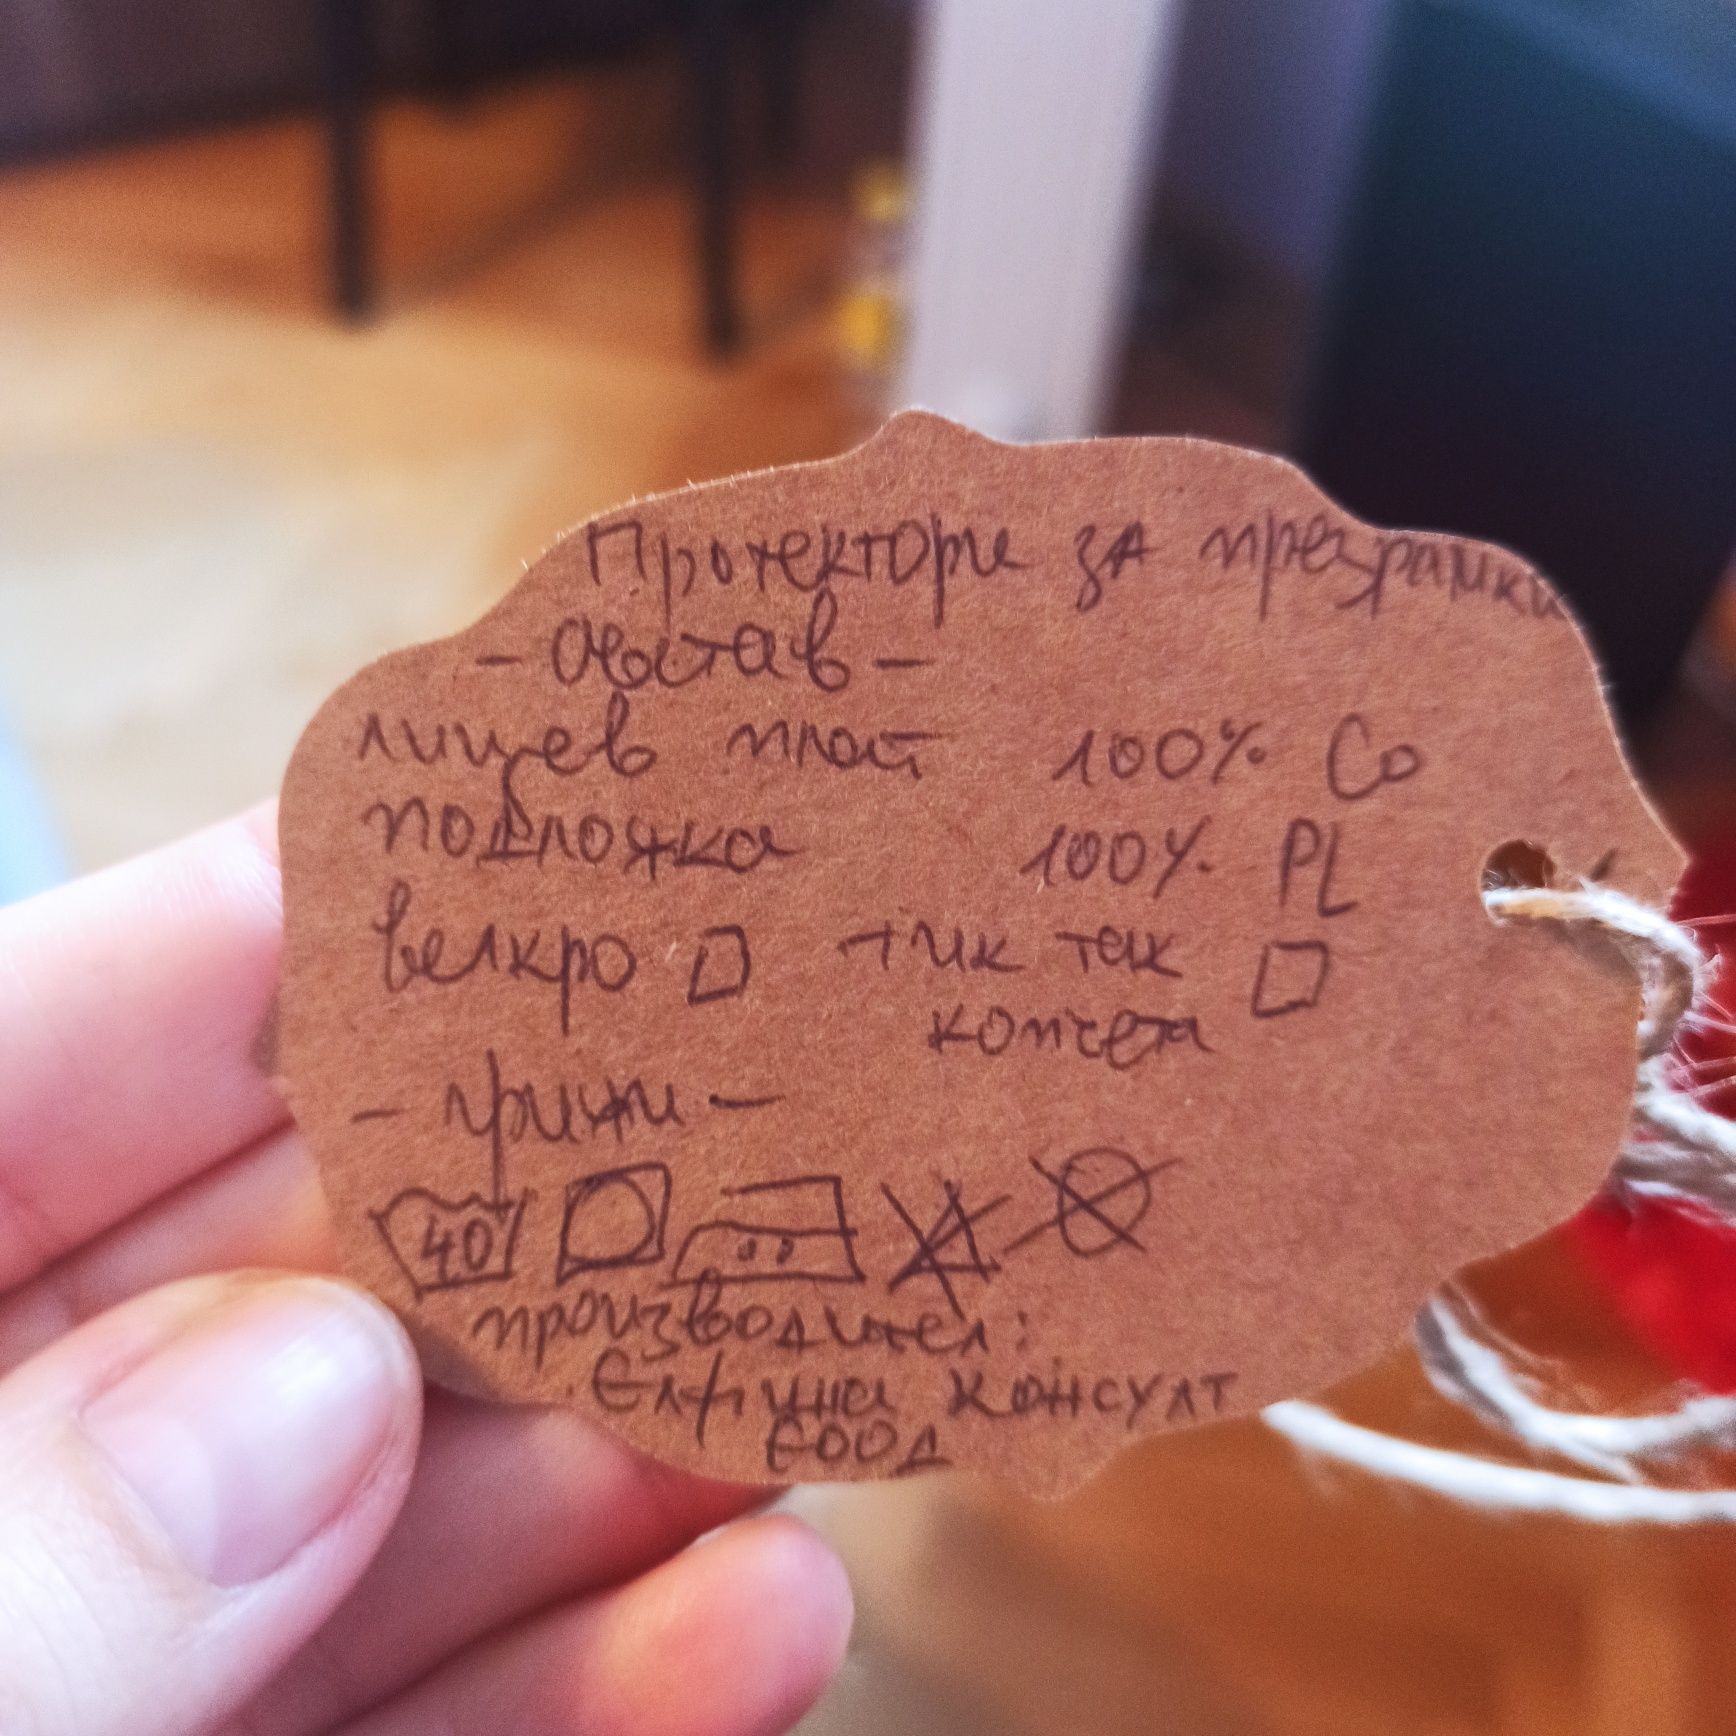 Протектори за презрамки
- състав -
лицев плат 100% Co
подложка 100% PL
велкро □ тик так □
копчета
- грижи -
40
производител:
Елфина консулт
ЕООД